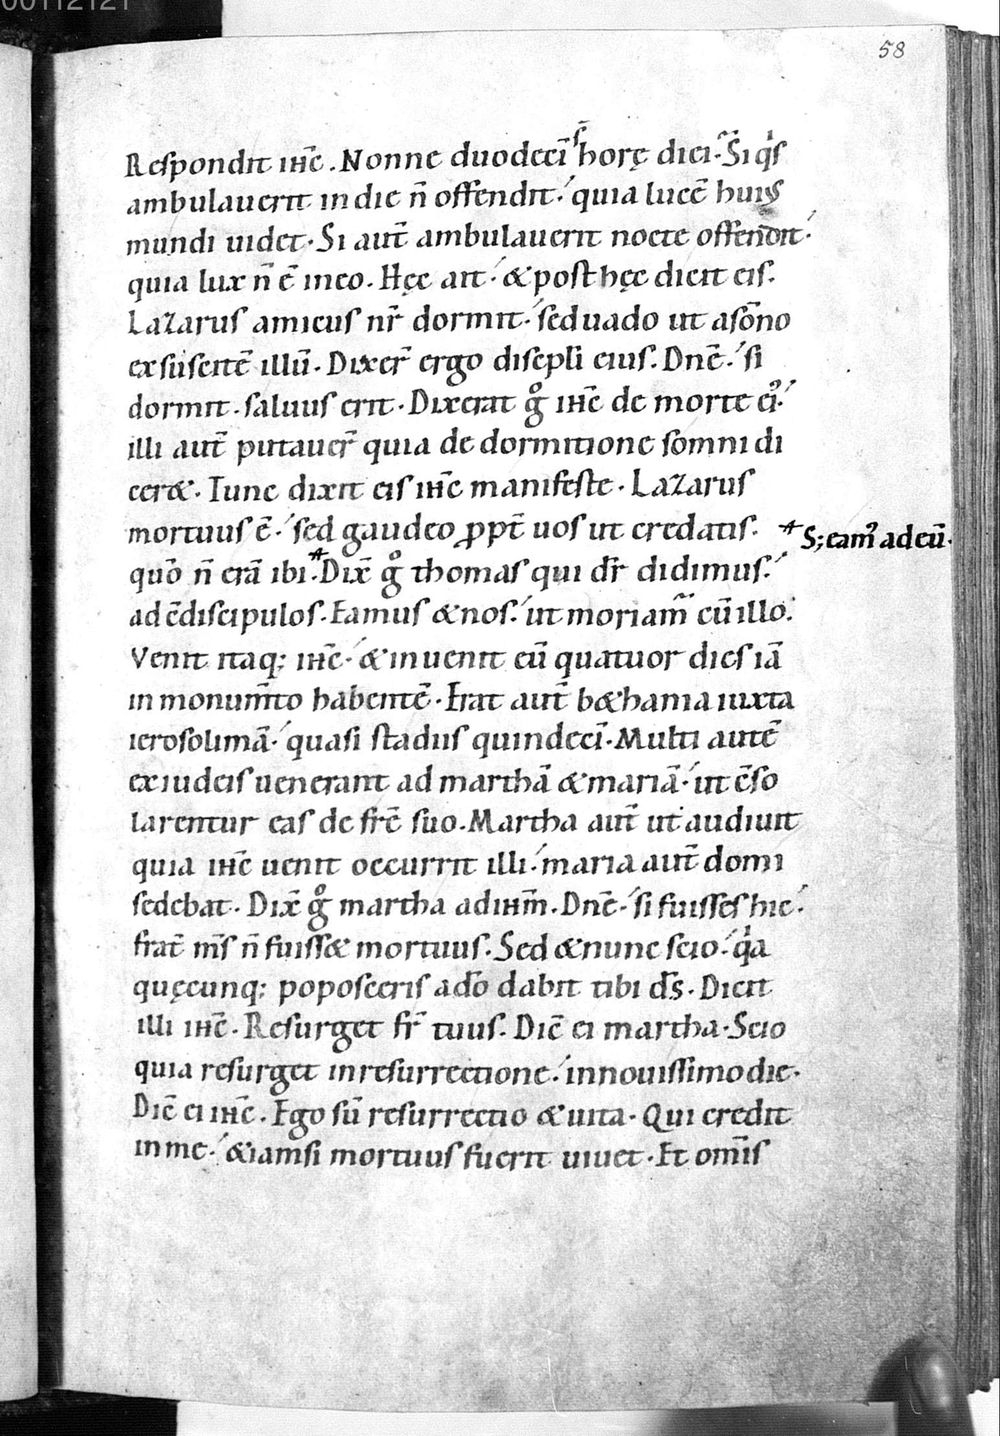 00112121
58
Respondit ihc̄. Nonne duodecī s̄ horę diei. Si qͥs
ambulauerit in die n̄ offendit. quia lucē huiꝰ
mundi uidet. Si aut̄ ambulauerit nocte offendit.
quia lux n̄ ē in eo. Hęc ait. & post hęc dicit eis.
Lazarus amicus nr̄ dormit. sed uado ut a sōno
exsuscitē illū. Dixer̄ ergo discpli eius. Dnē. si
dormit. saluus erit. Dixerat gͦ ihc̄ de morte eiꝰ.
illi aut̄ putauer̄ quia de dormitione somni di
cer&. Tunc dixit eis ihc̄ manifeste. Lazarus
mortuus ē. sed gaudeo ꝓpt̄ uos ut credatis.
S; eamꝰ ad eū.
quō n̄ erā ibi. Dix̄ gͦ thomas qui dr̄ didimus.
ad c̄discipulos. Eamus & nos. ut moriam̄ cū illo.
Venit itaq; ihc̄. & inuenit eū quatuor dies iā
in monum̄to habentē. Erat aut̄ b&hania iuxta
ierosolimā. quasi stadiis quindecī. Multi autē
ex iudeis uenerant ad marthā & mariā. ut c̄so
larentur eas de fr̄e suo. Martha aut̄ ut audiuit
quia ihc̄ uenit occurrit illi. maria aut̄ domi
sedebat. Dix̄ gͦ martha ad ihm̄. Dnē. si fuisses hic.
frat̄ ms̄ n̄ fuiss& mortuus. Sed & nunc scio. qͥa
quęcunq; poposceris a dō dabit tibi ds̄. Dicit
illi ihc̄. Resurget fr̄ tuus. Dic̄ ei martha. Scio
quia resurget in resurrectione. in nouissimo die.
Dic̄ ei ihc̄. Ego sū resurrectio & uita. Qui credit
in me. &iamsi mortuus fuerit uiuet. Et om̄is